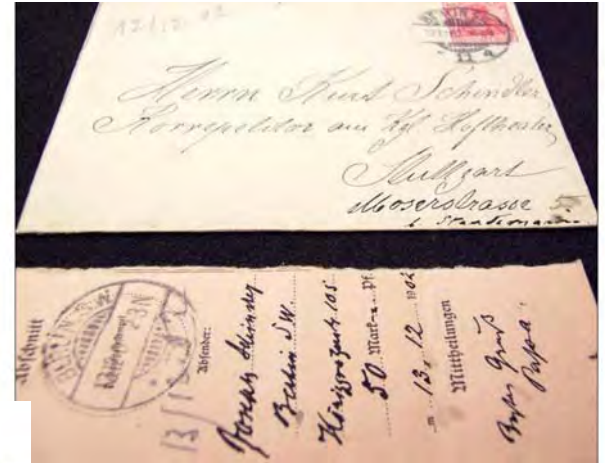 12/12. 02
BERLIN S.W.
11 a
Herrn Kurt Schindler,
Korrepetitor am Kgl. Hoftheater,
Stuttgart
Moserstrasse 5.
b.
Abschnitt
BERLIN S.W.
2-3 N
13/12
Absender:
Berlin S.W.
Königgrätzerstr. 105
50 Mark - Pf.
13. 12 1902
Mittheilungen
Gruß
Papa.